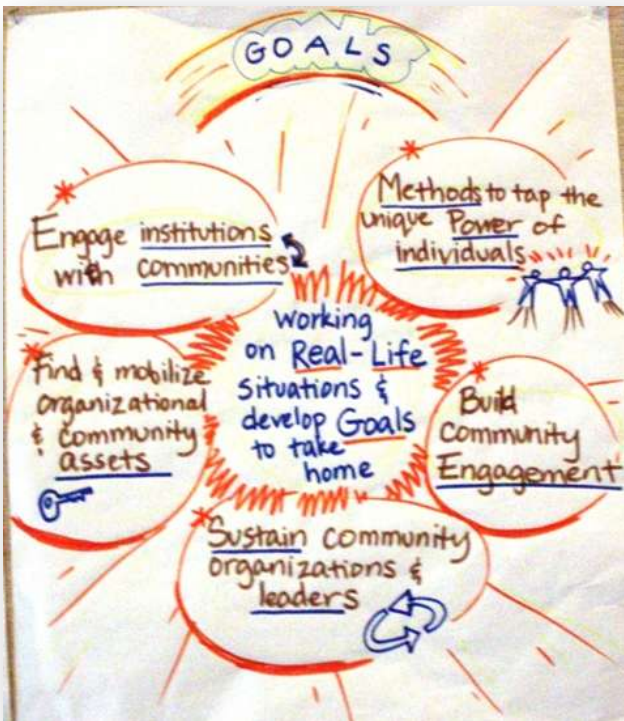 GOALS
Engage institutions
with communities
Methods to tap the
unique Power of
individuals
working
on Real-Life
situations &
develop Goals
to take
home
Find & mobilize
organizational
& community
assets
Build
Community
Engagement
Sustain community
organizations &
leaders